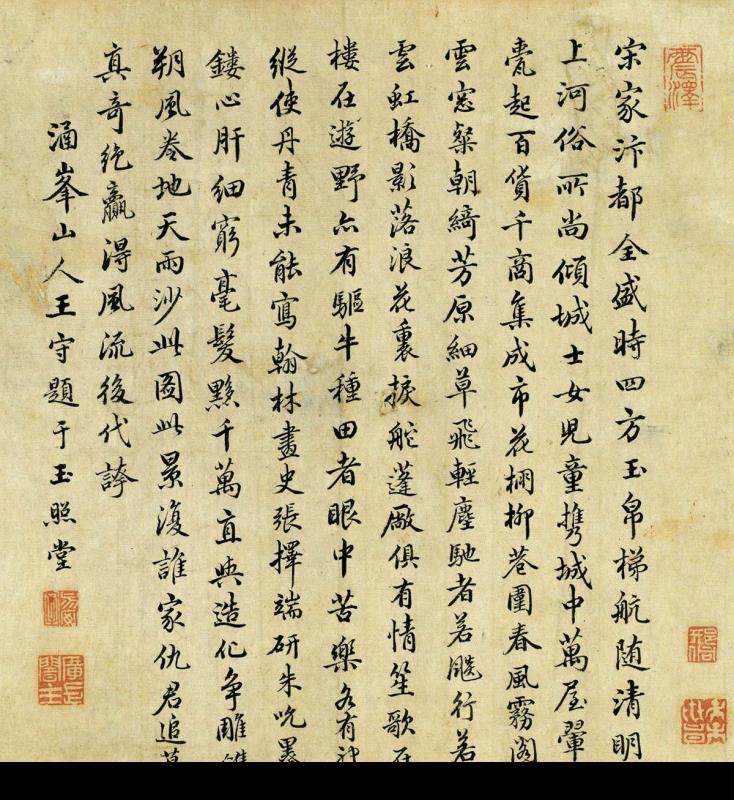 震澤
宋家汴都全盛時四方玉帛梯航随清明
上河俗所尚傾城士女兒童携城中萬屋翬
甍起百貨千商集成市花棚柳巷圍春風霧閣
雲窓粲朝綺芳原細草飛輕塵馳者若飈行若
雲虹橋影落浪花裏捩舵蓬廠俱有情笙歌在
樓在遊野亦有驅牛種田者眼中苦樂各有
縱使丹青未能寫翰林畫史張擇端研朱吮墨
鏤心肝細窮毫髮夥千萬直與造化争雕
朔風卷地天雨沙此圖此景復誰家仇君追
真奇絶贏得風流後代誇
涵峯山人王守題于玉照堂